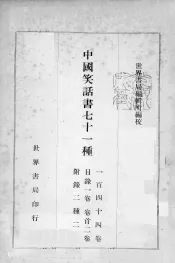 世界書局編輯所編校
中國笑話書七十一種
一百四十四卷
目錄一卷 卷首二卷
附錄二種二
世界書局印行